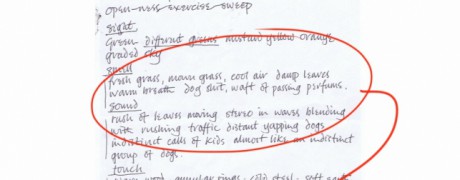 open-ness exercise sweep
sight
Green different greens mustard yellow orange
graded sky
smell
fresh grass, mown grass, cool air damp leaves
warm breath dog shit, waft of passing perfume.
sound
rush of leaves moving stereo in waves blending
with rushing traffic distant yapping dogs
indistinct calls of kids almost like an indistinct
group of dogs.
touch
wood, rings, cold steel, soft